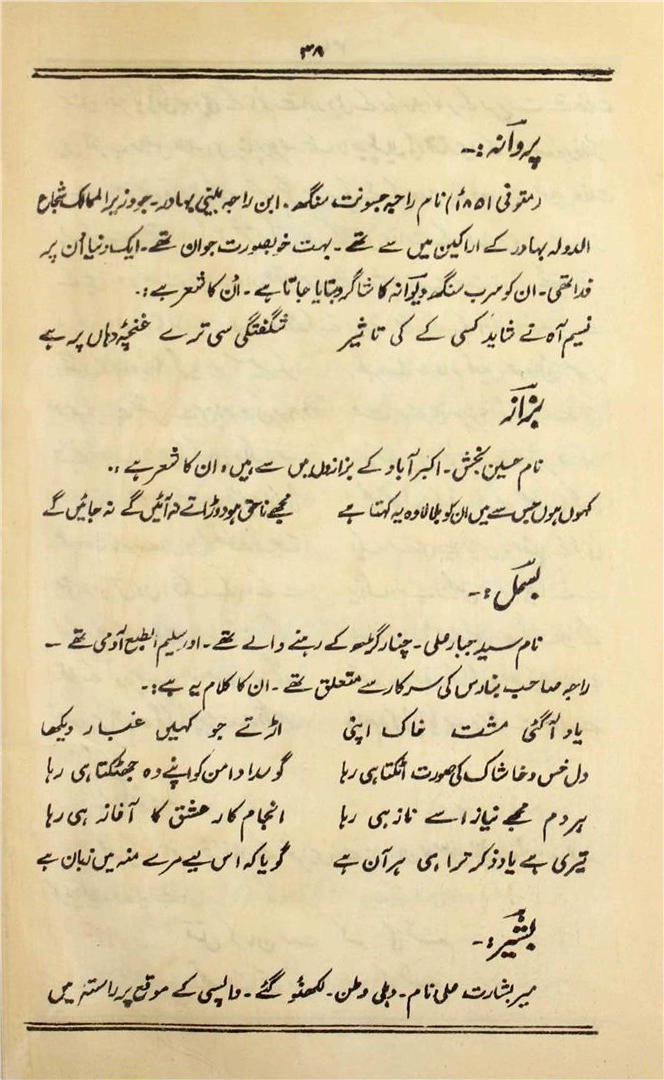 ۳۸
پروانہ:۔
(متوفی ۱۸۵۱ء) نام راجہ جسونت سنگھ۔ ابن راجہ بینی بہادر۔ جو وزیر الممالک شجاع
الدولہ بہادر کے اراکین میں سے تھے۔ بہت خوبصورت جوان تھے۔ ایک دنیا اُن پر
فدا تھی۔ ان کو سرب سنگھ دیوانہ کا شاگرد بتایا جاتا ہے۔ اُن کا شعر ہے:۔
نسیم آہ نے شاید کسی کے کی تاثیر شگفتگی سی ترے غنچۂ دہاں پر ہے
بزانہ
نام حسین بخش۔ اکبر آباد کے بزازوں میں سے ہیں، ان کا شعر ہے:۔
کہوں ہوں جس سے میں ان کو بلا لا وہ یہ کہتا ہے مجھے ناحق ہو دوڑاتے نہ آئیں گے نہ جائیں گے
بسمل:۔
نام سید جبار علی۔ چنار گڑھ کے رہنے والے تھے۔ اور سلیم الطبع آدمی تھے۔
راجہ صاحب بنارس کی سرکار سے متعلق تھے۔ ان کا کلام یہ ہے:۔
یاد آگئی مشت خاک اپنی اڑتے جو کہیں غبار دیکھا
دل خس و خاشاک کی صورت اٹکتا ہی رہا گو سدا دامن کو اپنے وہ جھٹکتا ہی رہا
ہر دم مجھے نیاز اسے ناز ہی رہا انجام کار عشق کا آغاز ہی رہا
تیری ہے یاد ذکر ترا ہی ہر آن ہے گویا کہ اس لیے مرے منہ میں زبان ہے
بشیر:۔
میر بشارت علی نام۔ دہلی وطن۔ لکھنؤ گئے۔ واپسی کے موقع پر راستہ میں